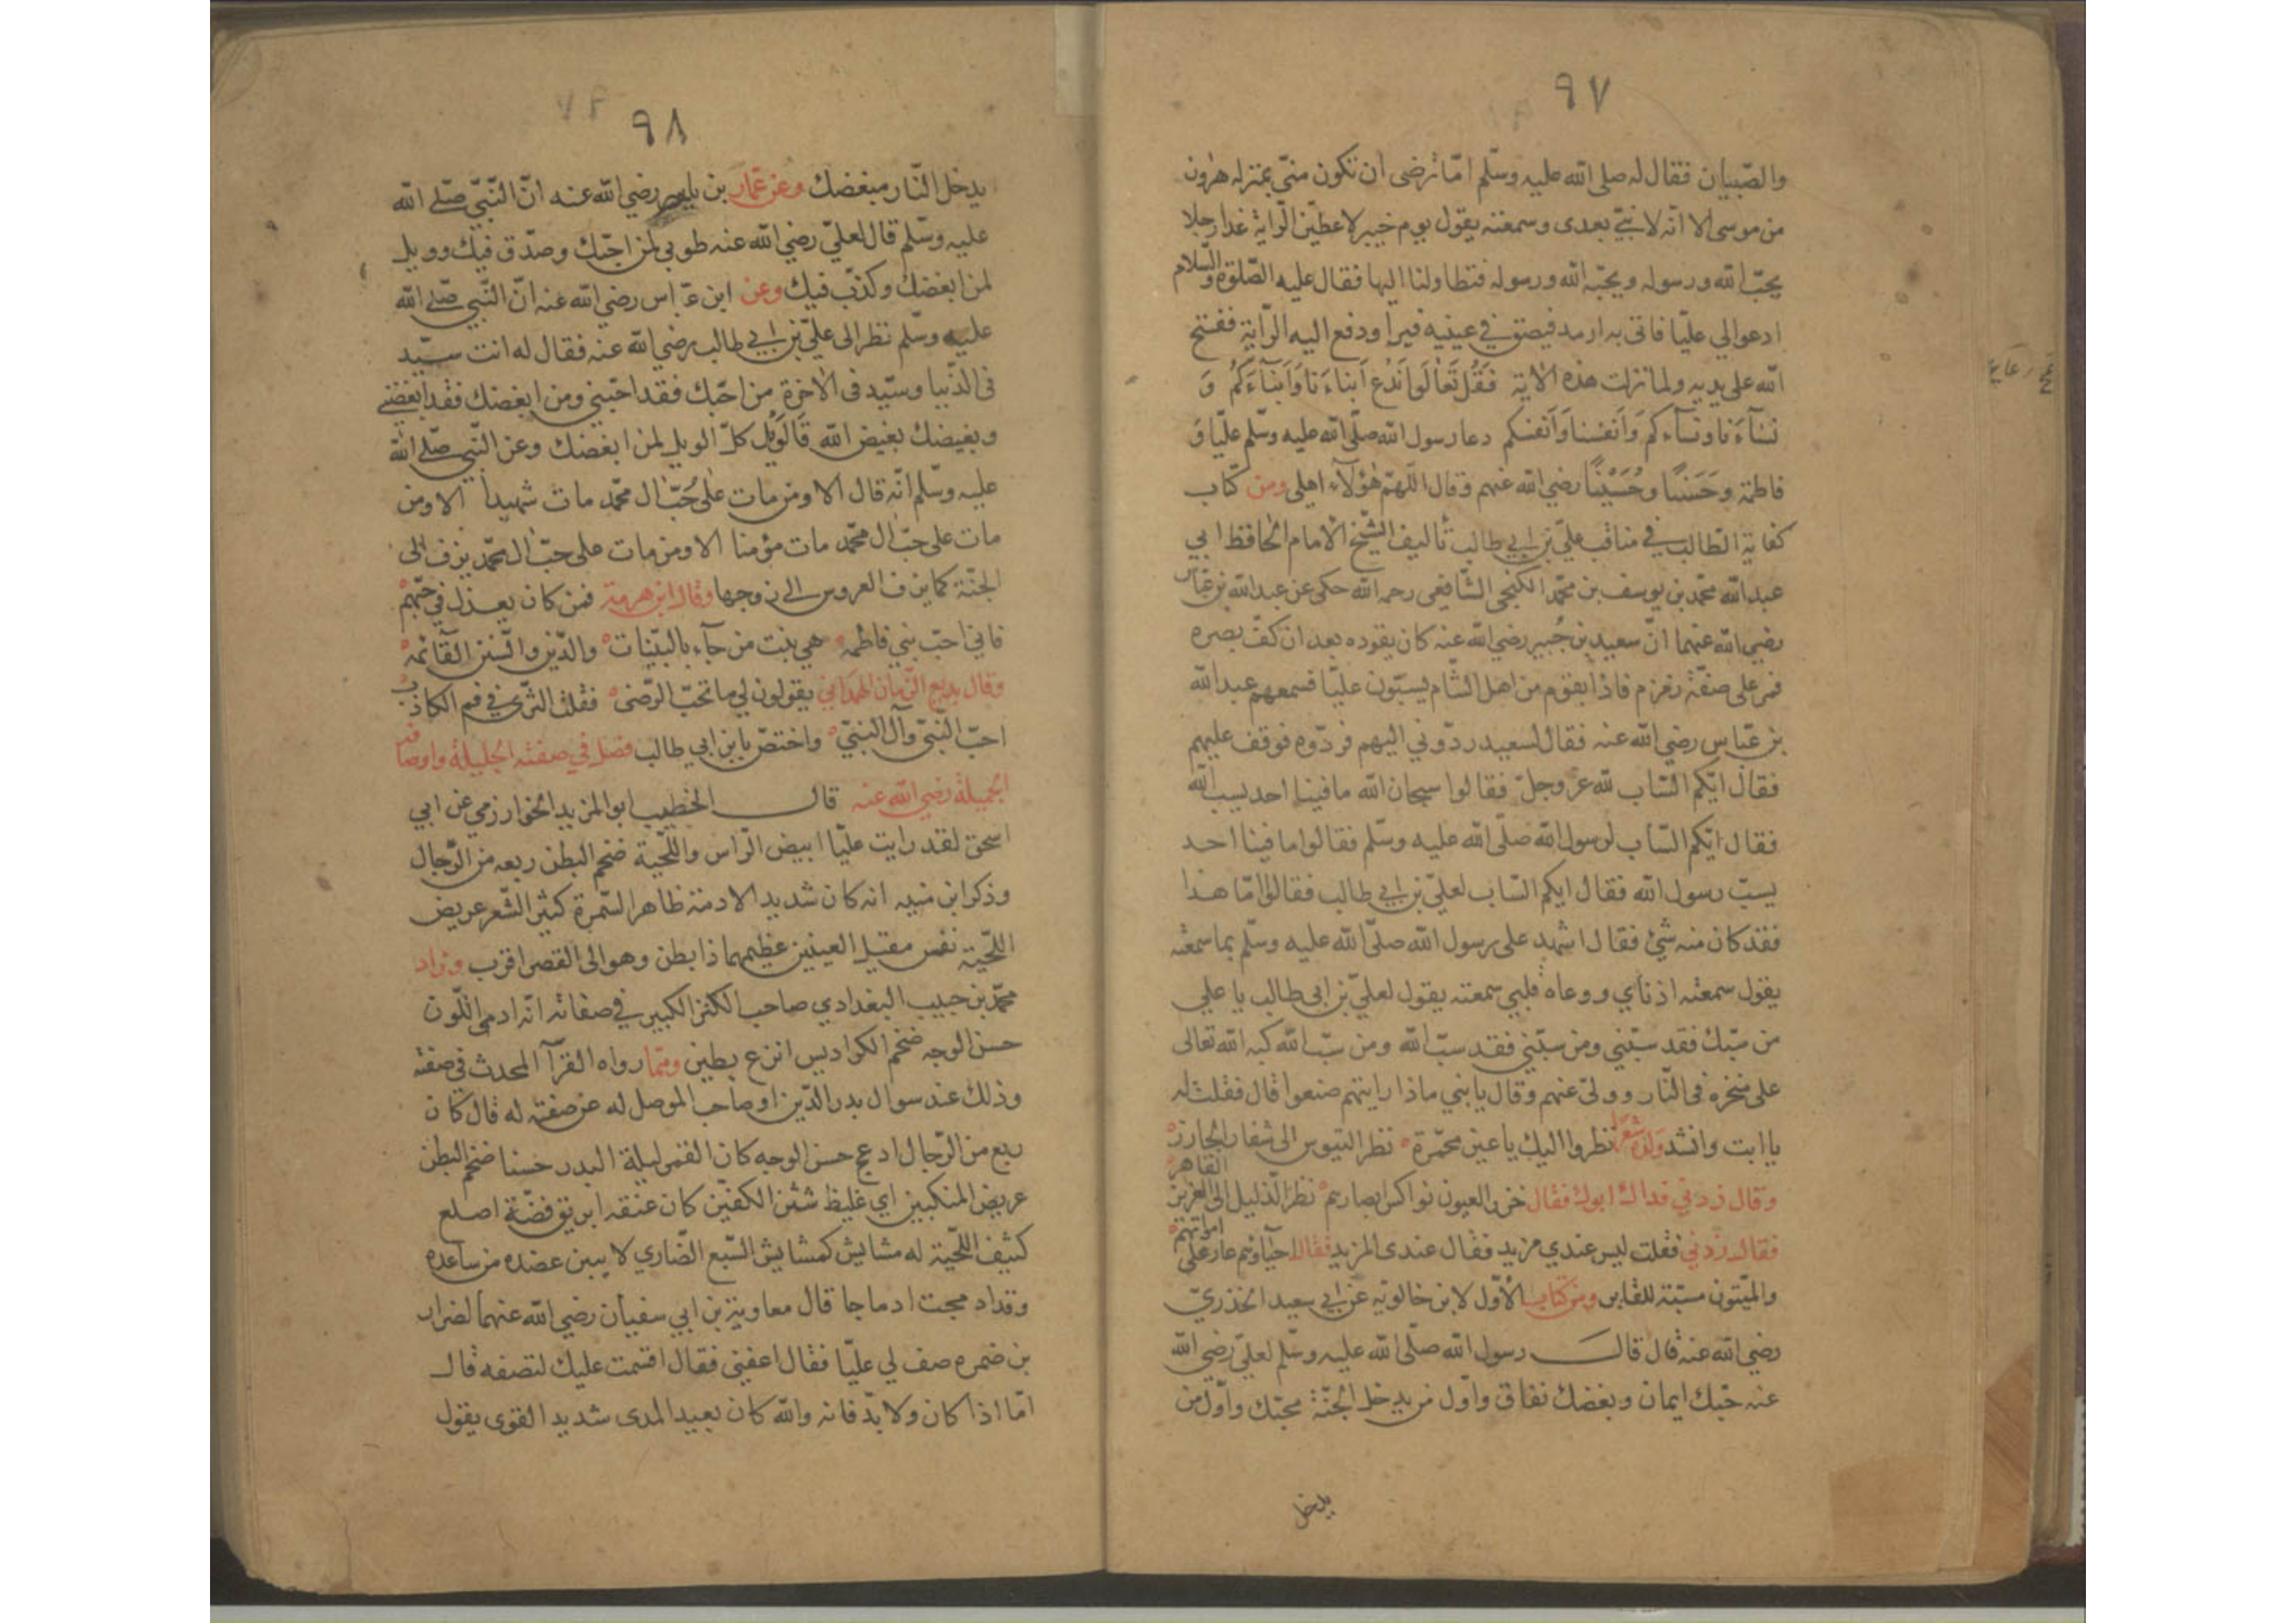 ٩٧
والصّبيان فقال له صلى الله عليه وسلم امّا ترضى ان تكون منّي بمنزله هرون
من موسى الا انّه لا نبيّ بعدى وسمعته يقول يوم خيبر لاعطيّن الرّاية غدا رجلا
يحبّ الله ورسوله ويحبّه الله ورسوله فتطاولنا اليها فقال عليه الصّلوة والسّلام
ادعوا لي عليّا فاتى به ارمد فبصق في عينيه فبرا ودفع اليه الرّاية ففتح
الله على يديه ولما نزلت هذه الاية فَقُل تَعَالَوا نَدْعُ اَبناءَنا وَاَبنَاءَكُم وَ
نِسَاءَنا ونساءكم وَاَنفسنا وَاَنفسكم دعا رسول الله صلّى الله عليه وسلّم عليّا وَ
فاطمة وحَسَنًا وحُسَيْنًا رضي الله عنهم وقال اللّهمّ هٰؤلآء اهلى ومن كتاب
كفاية الطّالب في مناقب عليّ بن ابي طالب تأليف الشّيخ الامام الحافظ ابي
عبدالله محمّد بن يوسف بن محمّد الكنجي الشّافعي رحمه الله حكى عن عبدالله بن عبّاس
رضي الله عنهما انّ سعيد بن جُبير رضي الله عنه كان يقوده بعد ان كفّ بصره
فمرّ على صفّة زمزم فاذا بقوم من اهل الشّام يسبّون عليّا فسمعهم عبدالله
بن عبّاس رضي الله عنه فقال لسعيد ردّوني اليهم فردّوه فوقف عليهم
فقال ايّكم السّاب لله عزّ وجلّ فقالوا سبحان الله ما فينا احد يسب الله
فقال ايّكم السّاب لرسول الله صلّى الله عليه وسلّم فقالوا ما فينا احد
يسبّ رسول الله فقال ايكم السّاب لعليّ بن ابي طالب فقالوا امّا هذا
فقد كان منه شئ فقال اشهد على رسول الله صلّى الله عليه وسلّم بما سمعته
يقول سمعته اذناي ووعاه قلبي سمعته يقول لعليّ بن ابى طالب يا علي
من سبّك فقد سبّني ومن سبّني فقد سبّ الله ومن سبّ الله كبه الله تعالى
على منخره فى النّار وولّى عنهم وقال يا بني ماذا رايتهم صنعوا قال فقلت له
يا ابت وانشد ولده شعر انظروا اليك يا عين محمّرة نظر التيوس الى شفار الجازر
وقال زدني فداك ابوك فقال خزر العيون نواكس ابصارهم نظر الذّليل الى العزيز القاهر
فقال زدني فقلت ليس عندي مزيد فقال عندى المزيد فقال احياؤهم عار على امواتهم
والميّتون مسبّة للغابر ومن كتاب الأوّل لابن خالويه عن ابي سعيد الخدريّ
رضي الله عنه قال قال رسول الله صلّى الله عليه وسلّم لعليّ رضي الله
عنه حبّك ايمان وبغضك نفاق واوّل من يدخل الجنّة محبّك واوّل من
يدخل
٩٨
يدخل النّار مبغضك وعن عمّار بن ياسر رضي الله عنه انّ النّبيّ صلّى الله
عليه وسلّم قال لعليّ رضي الله عنه طوبى لمن احبّك وصدّق فيك وويل
لمن ابغضك وكذّب فيك وعن ابن عبّاس رضي الله عنه انّ النّبيّ صلّى الله
عليه وسلّم نظر الى عليّ بن ابي طالب رضي الله عنه فقال له انت سيّد
فى الدّنيا وسيّد فى الاخرة من احبّك فقد احبّني ومن ابغضك فقد ابغضني
وبغيضك بغيض الله فَالوَيْل كلّ الويل لمن ابغضك وعن النّبيّ صلّى الله
عليه وسلّم انّه قال الا ومن مات على حُبّ ال محمّد مات شهيدا الا ومن
مات على حبّ ال محمّد مات مؤمنا الا ومن مات على حبّ ال محمّد يزف الى
الجنّة كما يزف العروس الى زوجها وقال ابن هرمة فمن كان يعذل في حبّهم
فاني احبّ بني فاطمه هي بنت من جآء بالبيّنات والدّين والسّنن القآئمه
وقال بديع الزّمان الهمداني يقولون لي ما تحبّ الوصى فقلت الثّرى في فم الكاذب
احبّ النّبيّ وآل النبيّ واختصّ بابن ابي طالب فصل في صفته الجليلة واوصافه
الجميلة رضي الله عنه قال الخطيب ابو المزيد الخوارزمي عن ابي
اسحق لقد رايت عليّا ابيض الرّاس واللّحية ضخم البطن ربعه من الرّجال
وذكر ابن منبه انه كان شديد الادمة ظاهر السّمرة كثير الشّعر عريض
اللّحية مقيل العينين عظيمهما ذا بطن وهو الى القصر اقرب وزاد
محمّد بن حبيب البغدادي صاحب الكبير في صفاته انّه ادمى اللّون
حسن الوجه ضخم الكراديس انزع بطين وممّا رواه القرّآ المحدث في صفته
وذلك عند سوال بدر الدّين صاحب الموصل له عن صفته له قال كان
ربع من الرّجال ادعج حسن الوجه كان القمر ليلة البدر حسنا ضخم البطن
عريض المنكبين اي غليظ شثن الكفين كان عنقه ابريق فضّة اصلع
كثيف اللّحية له مشاش كمشاش السّبع الضّاري لا يبين عضده من ساعده
وقد ادمجت ادماجا قال معاوية بن ابي سفيان رضي الله عنهما لضرار
بن ضمره صف لي عليّا فقال اعفني فقال اقسمت عليك لتصفه قال
امّا اذا كان ولا بدّ فانه والله كان بعيد المدى شديد القوى يقول